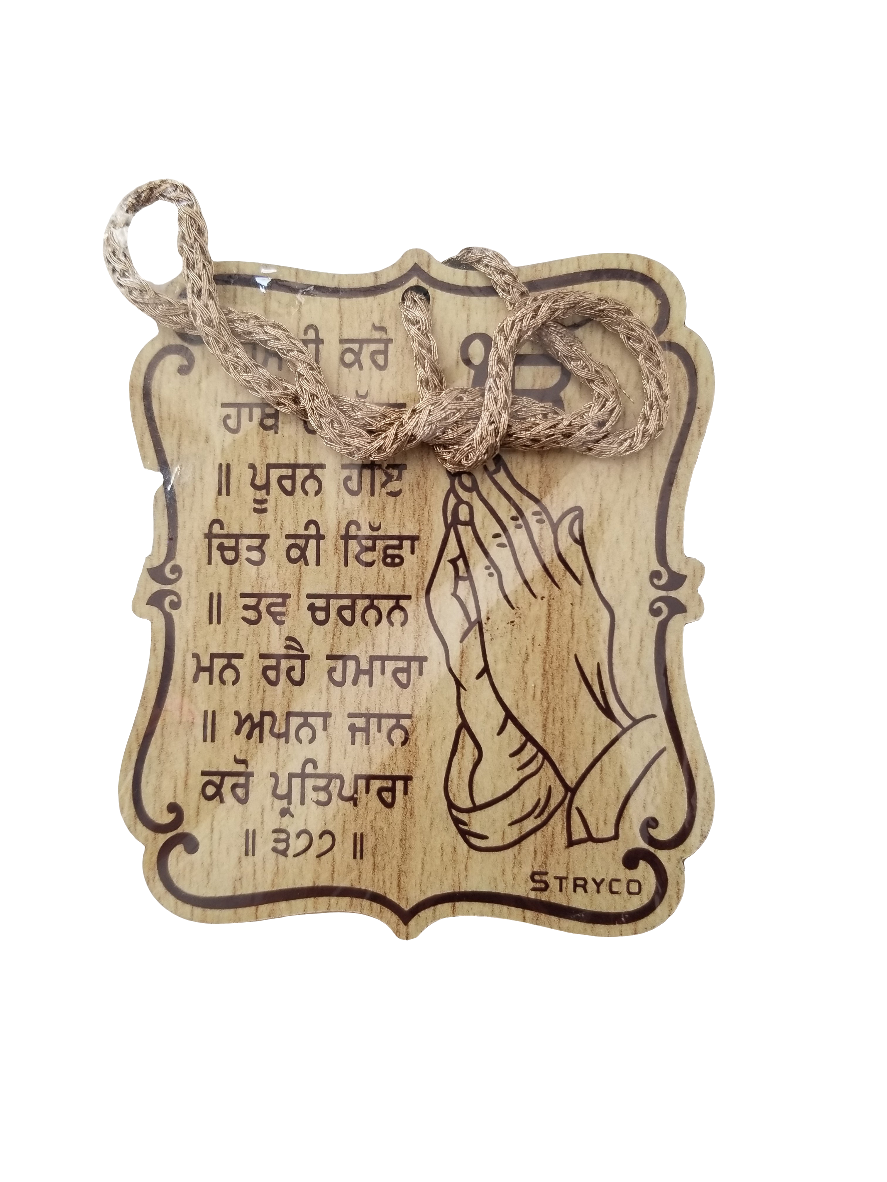 ਕਰੋ
ਹਾਥ
॥ ਪੂਰਨ ਹੋਇ
ਚਿਤ ਕੀ ਇੱਛਾ
॥ ਤਵ ਚਰਨਨ
ਮਨ ਰਹੈ ਹਮਾਰਾ
॥ ਅਪਨਾ ਜਾਨ
ਕਰੋ ਪ੍ਰਤਿਪਾਰਾ
॥ ੩੭੭ ॥
STRYCO